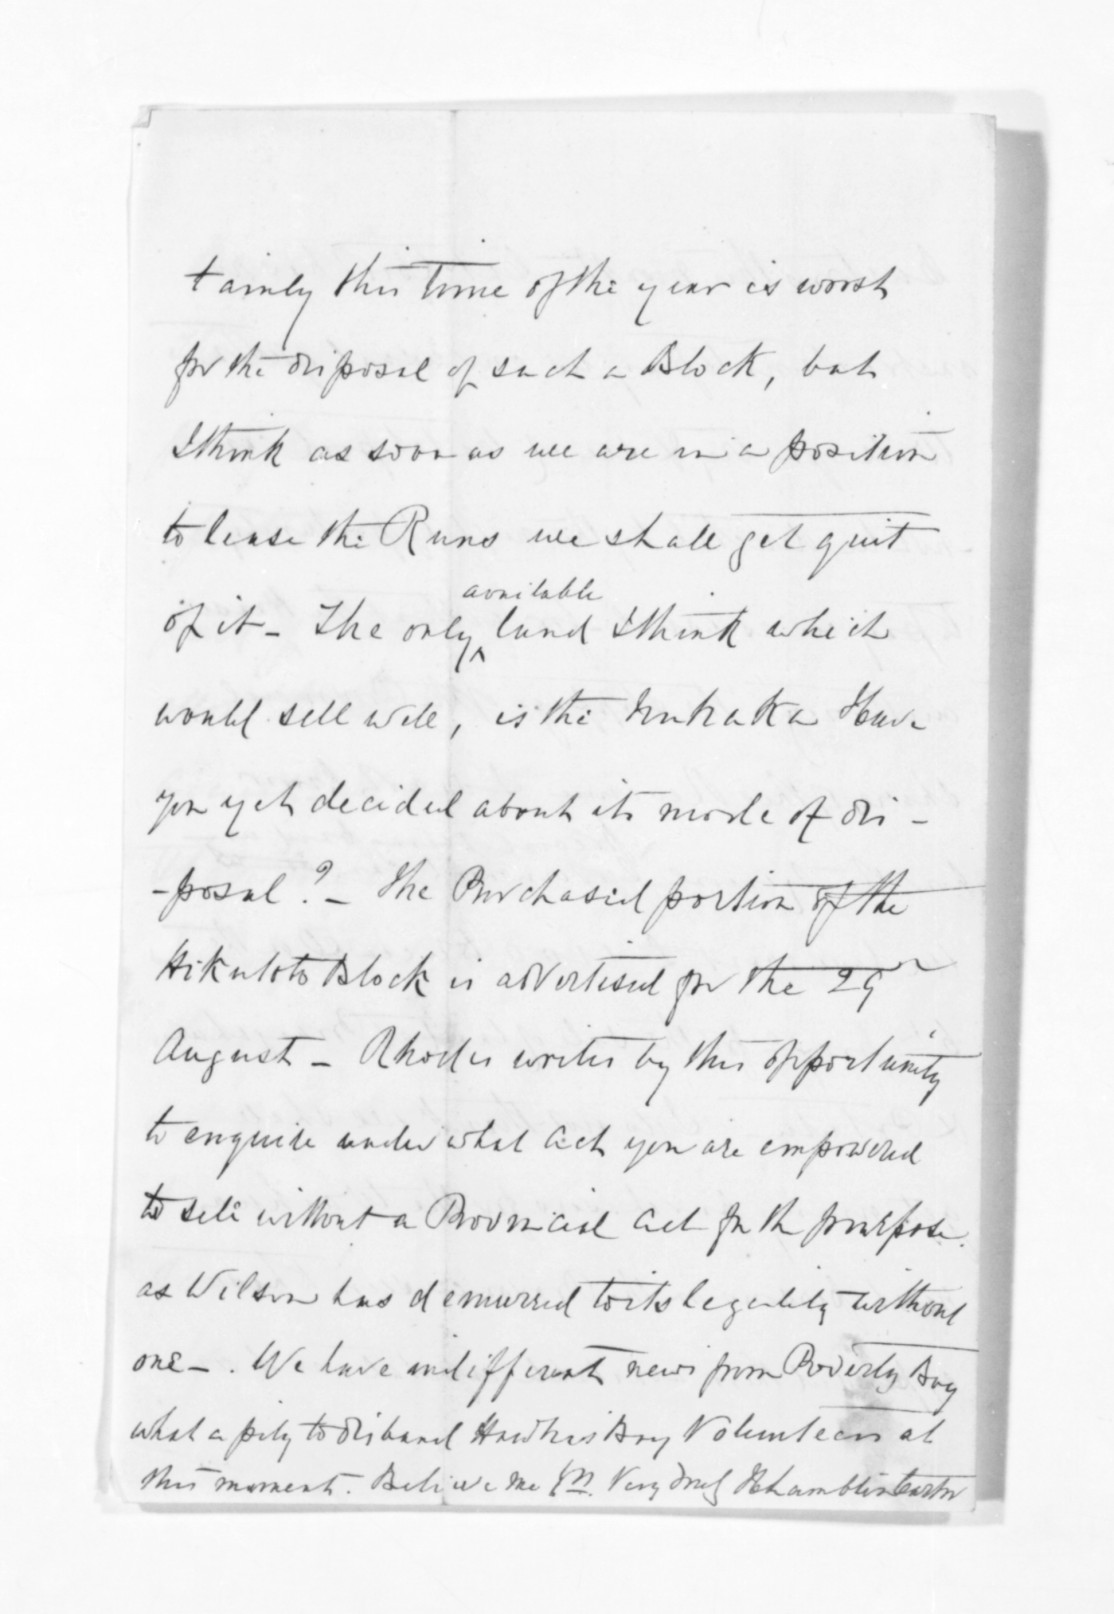 tainly this time of the year is worst
for the disposal of such a Block, but
I think as soon as we are in a position
to lease the Runs we shall get quit
of it - The only available land I think which
would sell well, is the Have
you yet decided about its mode of dis-
-posal? - The Purchased portion of the
Hikutoto Block is advertised for the 29
August - Rhodes writes by this opportunity
to enquire under what Act you are empowered
to sell without a Provincial Act for the purpose.
as Wilson has demurred to its legality without
one -. We have indifferent news from Poverty Bay
what a pity to disband Hawkes Bay Volunteers at
this moment. Believe me Yrs. Very truly